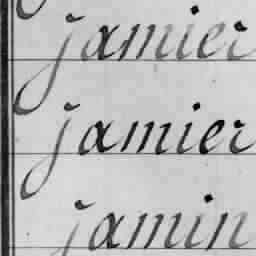 jamier
jamier
jamin